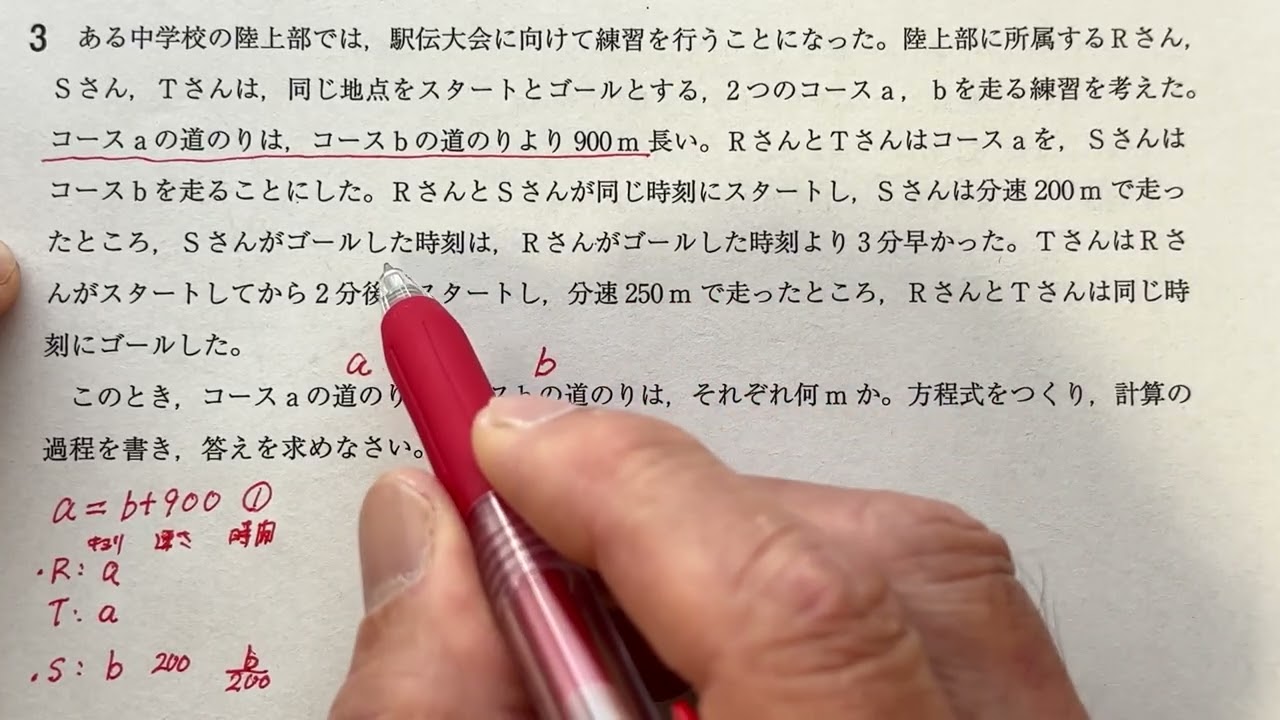 3 ある中学校の陸上部では，駅伝大会に向けて練習を行うことになった。陸上部に所属するRさん，
Sさん，Tさんは，同じ地点をスタートとゴールとする，2つのコースa，bを走る練習を考えた。
コースaの道のりは，コースbの道のりより900m長い。RさんとTさんはコースaを，Sさんは
コースbを走ることにした。RさんとSさんが同じ時刻にスタートし，Sさんは分速200mで走っ
たところ，Sさんがゴールした時刻は，Rさんがゴールした時刻より3分早かった。TさんはRさ
んがスタートしてから2分後 スタートし，分速250mで走ったところ，RさんとTさんは同じ時
刻にゴールした。
a b
このとき，コースaの道のり の道のりは，それぞれ何mか。方程式をつくり，計算の
過程を書き，答えを求めなさい。
a = b+900 ①
速さ 時間
・R: a
T: a
・S: b 200 b/200